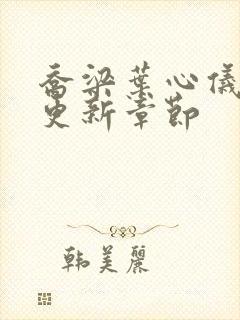 喬梁葉心儀
更新章節
韩美麗